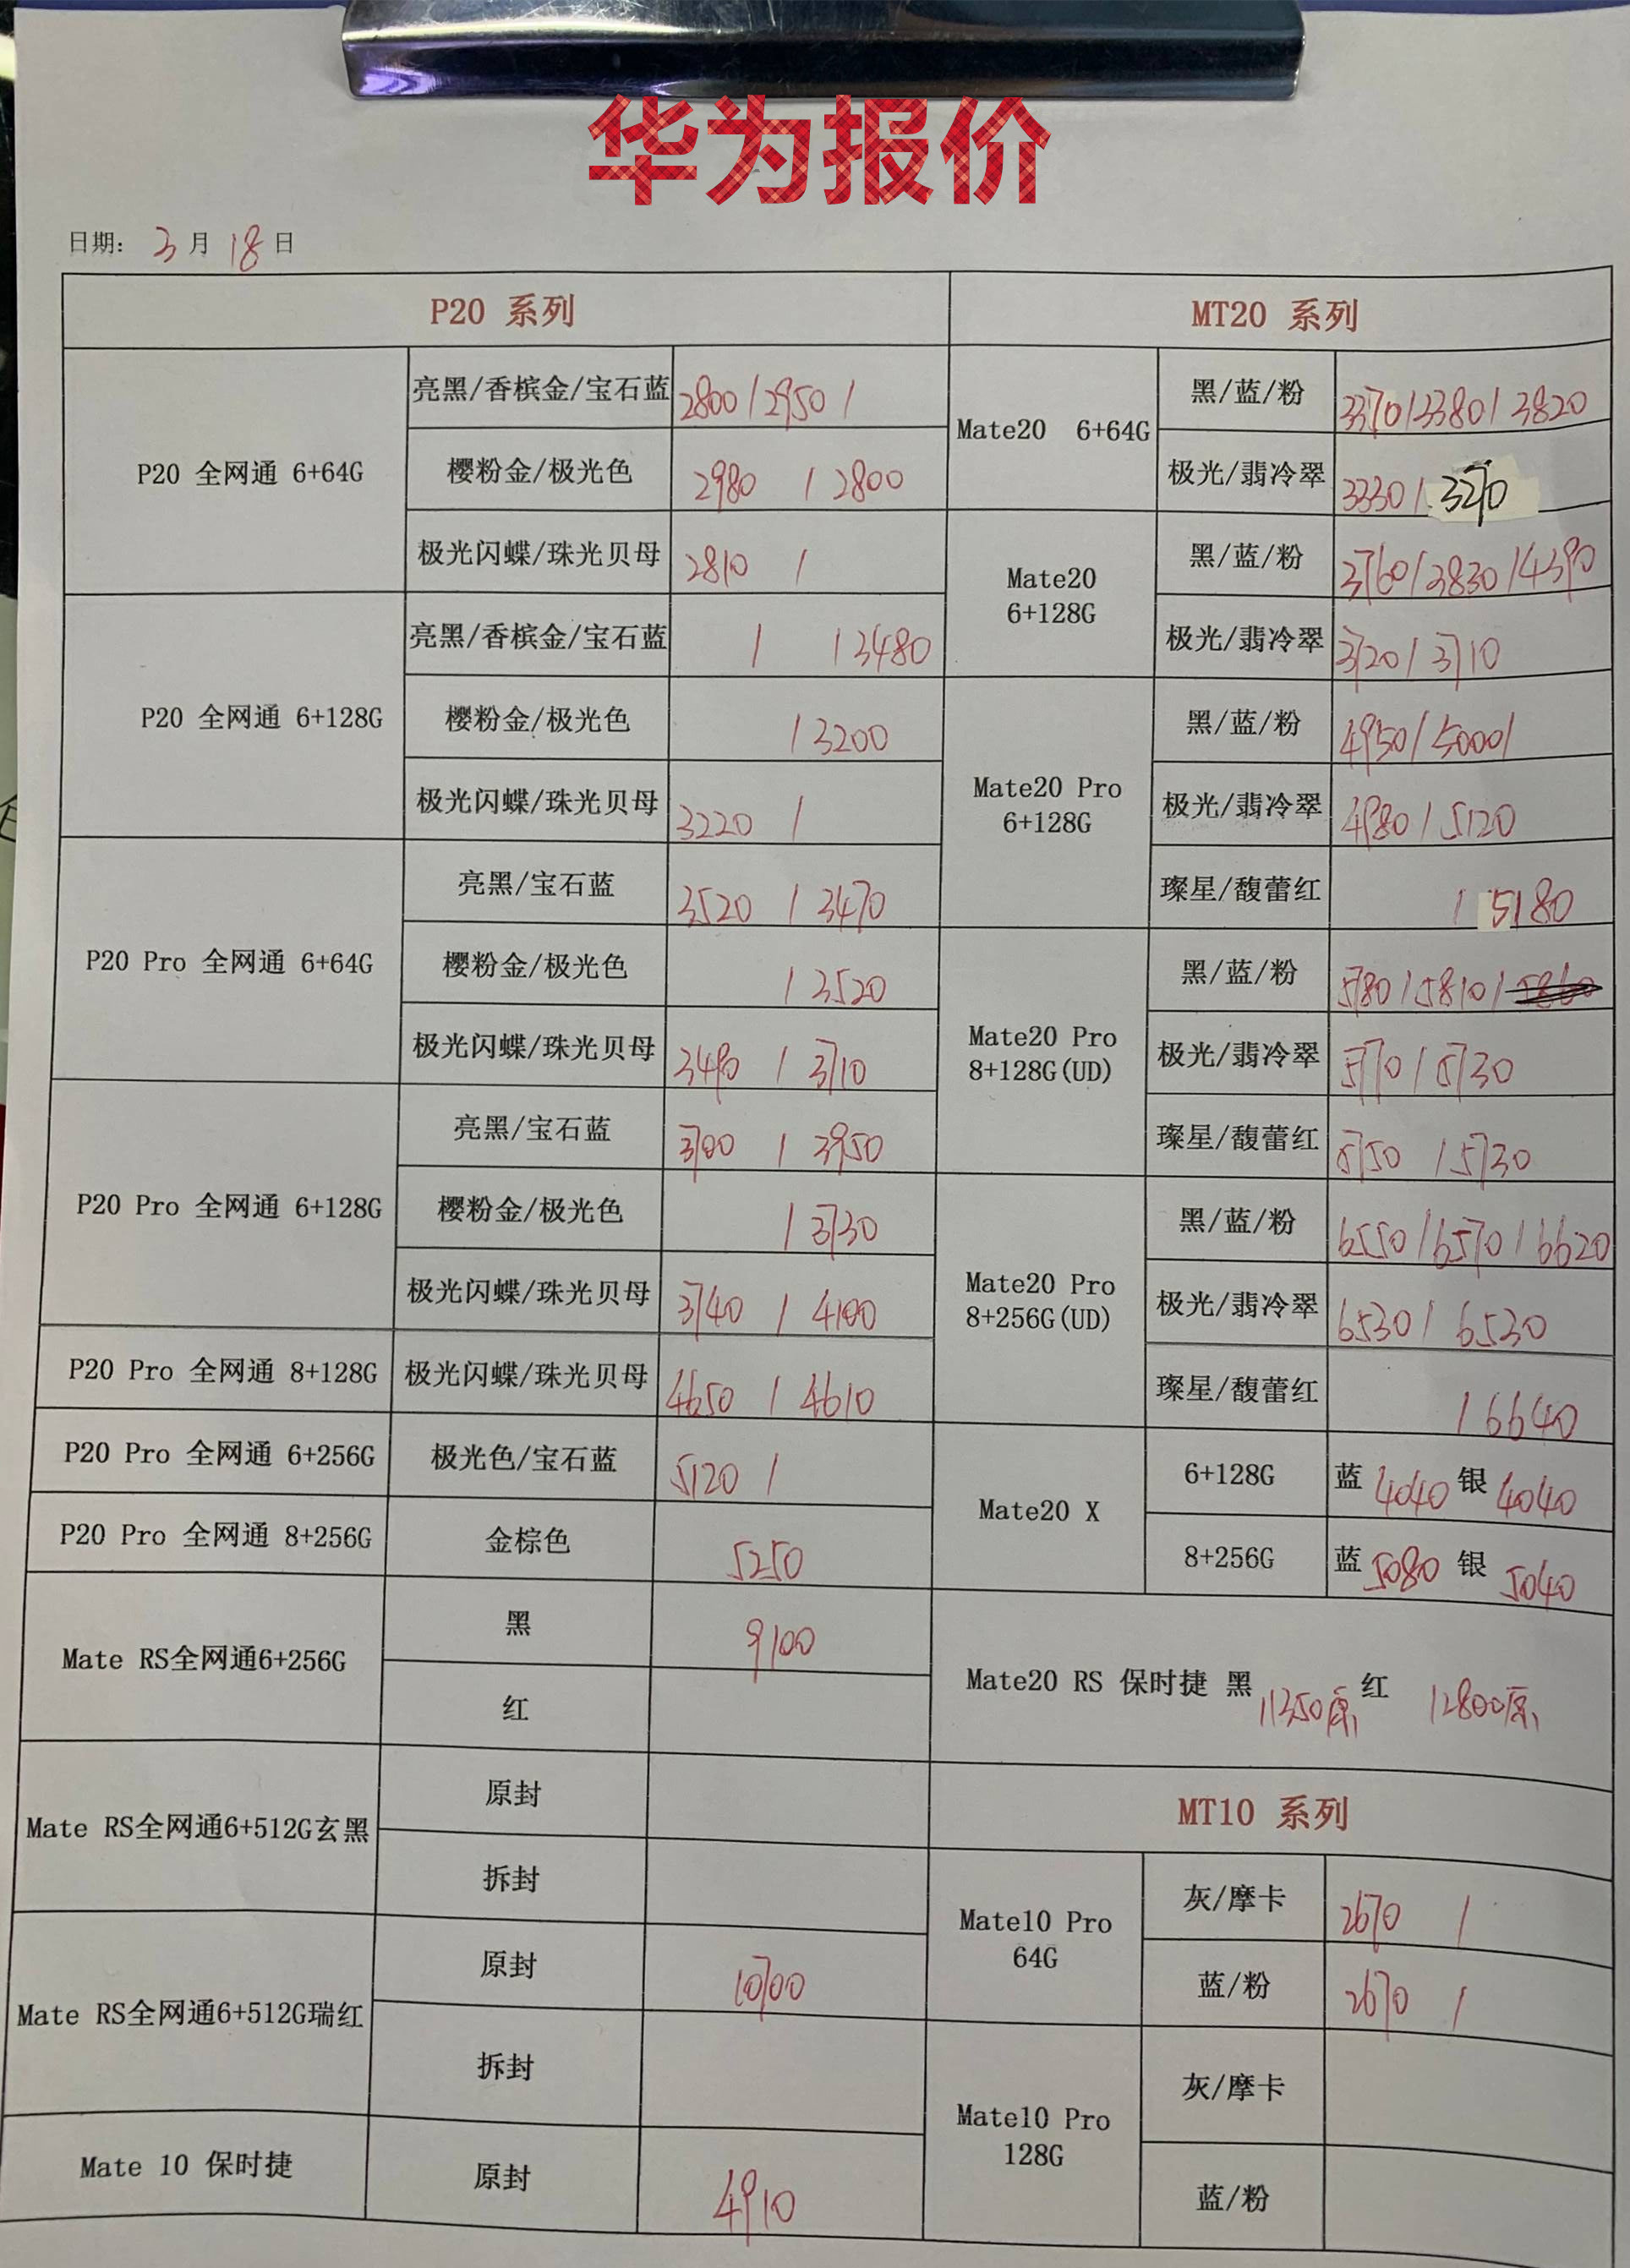 华为报价
日期： 3 月 18 日
P20 系列
P20 全网通 6+64G
亮黑/香槟金/宝石蓝 2800 / 2950 /
樱粉金/极光色 2980 / 2800
极光闪蝶/珠光贝母 2810 /
P20 全网通 6+128G
亮黑/香槟金/宝石蓝 / / 3480
樱粉金/极光色 / 3200
极光闪蝶/珠光贝母 3220 /
P20 Pro 全网通 6+64G
亮黑/宝石蓝 3520 / 3470
樱粉金/极光色 / 3520
极光闪蝶/珠光贝母 3490 / 3710
P20 Pro 全网通 6+128G
亮黑/宝石蓝 / 3950
樱粉金/极光色 / 3730
极光闪蝶/珠光贝母 3740 / 4100
P20 Pro 全网通 8+128G 极光闪蝶/珠光贝母 4650 / 4610
P20 Pro 全网通 6+256G 极光色/宝石蓝 5120 /
P20 Pro 全网通 8+256G 金棕色 5250
Mate RS全网通6+256G
黑 9100
红
Mate RS全网通6+512G玄黑
原封
拆封
Mate RS全网通6+512G瑞红
原封 10700
拆封
Mate 10 保时捷 原封 4910
MT20 系列
Mate20 6+64G
黑/蓝/粉 3370 / 3380 / 3820
极光/翡冷翠 3330 / 3270
Mate20
6+128G
黑/蓝/粉 3760 / 3830 / 4390
极光/翡冷翠 3720 / 3710
Mate20 Pro
6+128G
黑/蓝/粉 4950 / 5000 /
极光/翡冷翠 4980 / 5120
璨星/馥蕾红 / 5180
Mate20 Pro
8+128G(UD)
黑/蓝/粉 5780 / 5810 /
极光/翡冷翠 5770 / 5730
璨星/馥蕾红 5750 / 5730
Mate20 Pro
8+256G(UD)
黑/蓝/粉 6550 / 6570 / 6620
极光/翡冷翠 6530 / 6530
璨星/馥蕾红 / 6640
Mate20 X
6+128G 蓝 4040 银 4040
8+256G 蓝 5080 银 5040
Mate20 RS 保时捷 黑 11350原 红 12800原
MT10 系列
Mate10 Pro
64G
灰/摩卡 2670 /
蓝/粉 2670 /
Mate10 Pro
128G
灰/摩卡
蓝/粉